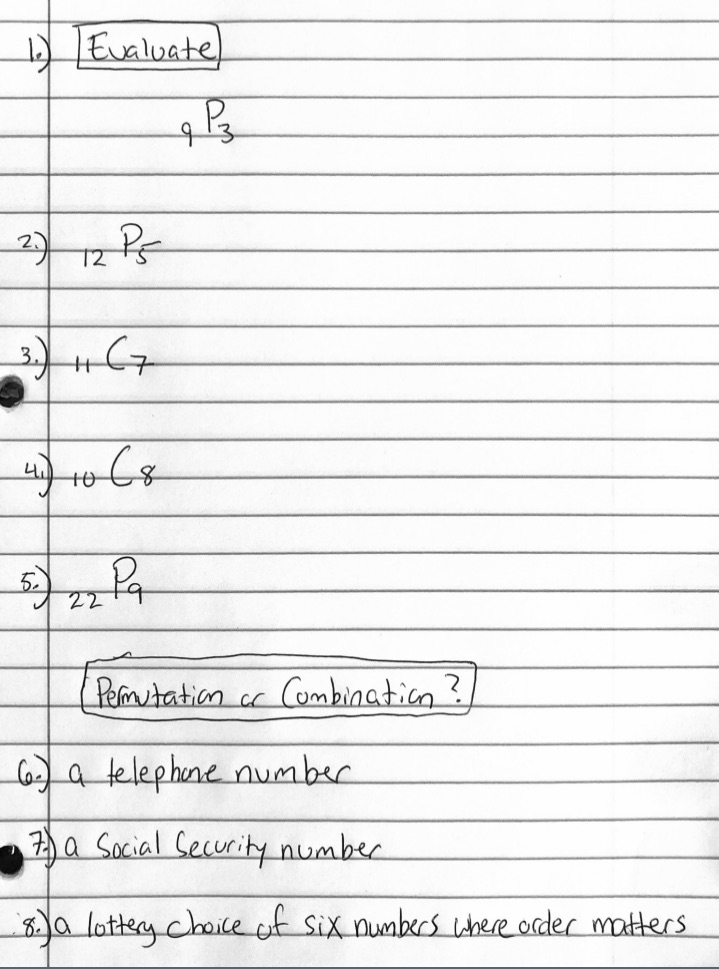 1.) Evaluate
9P3
2.) 12P5
3.) 11C7
4.) 10C8
5.) 22P9
Permutation or Combination?
6.) a telephone number
7.) a Social Security number
8.) a lottery choice of six numbers where order matters